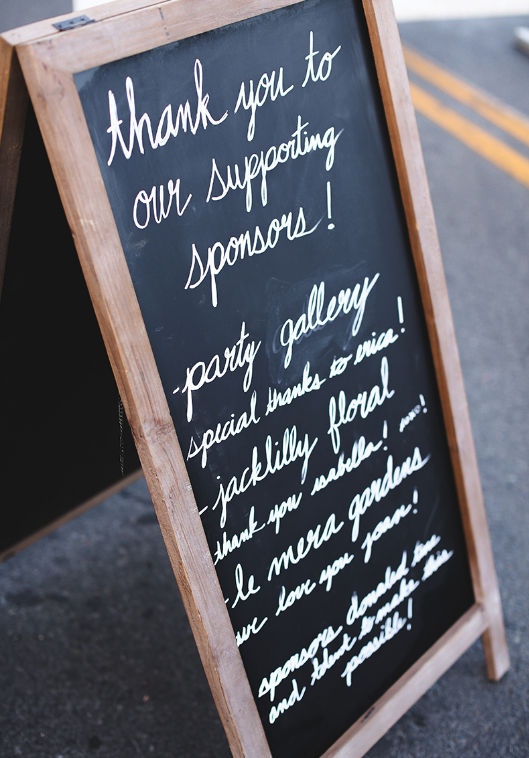 thank you to
our supporting
sponsors!
-party gallery
special thanks to erica!
-jacklilly floral
thank you isabella! xoxo!
-le mera gardens
we love you joan!
sponsors donated time
and talent to make this
possible!